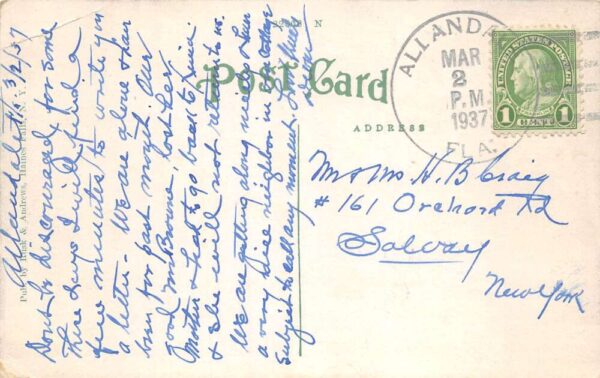 32908 N
Post Card
ADDRESS
ALLANDALE
MAR
2
P.M.
1937
FLA.
UNITED STATES POSTAGE
FRANKLIN
1 CENT 1
Mr & Mrs H. B. Craig
# 161 Orchard Rd
Solvay
New York
3/2/37
Dont be discouraged for some
these days I will find a
few minutes to write you
a letter. We are alone & have
been for past month. Our
good Mrs Browne, lost her
Mother & had to go back to
& she will not return to us.
We are getting along nicely & have
a very nice neighbor in a cottage
subject to call any moment.
Pub. by Buck & Andrews,